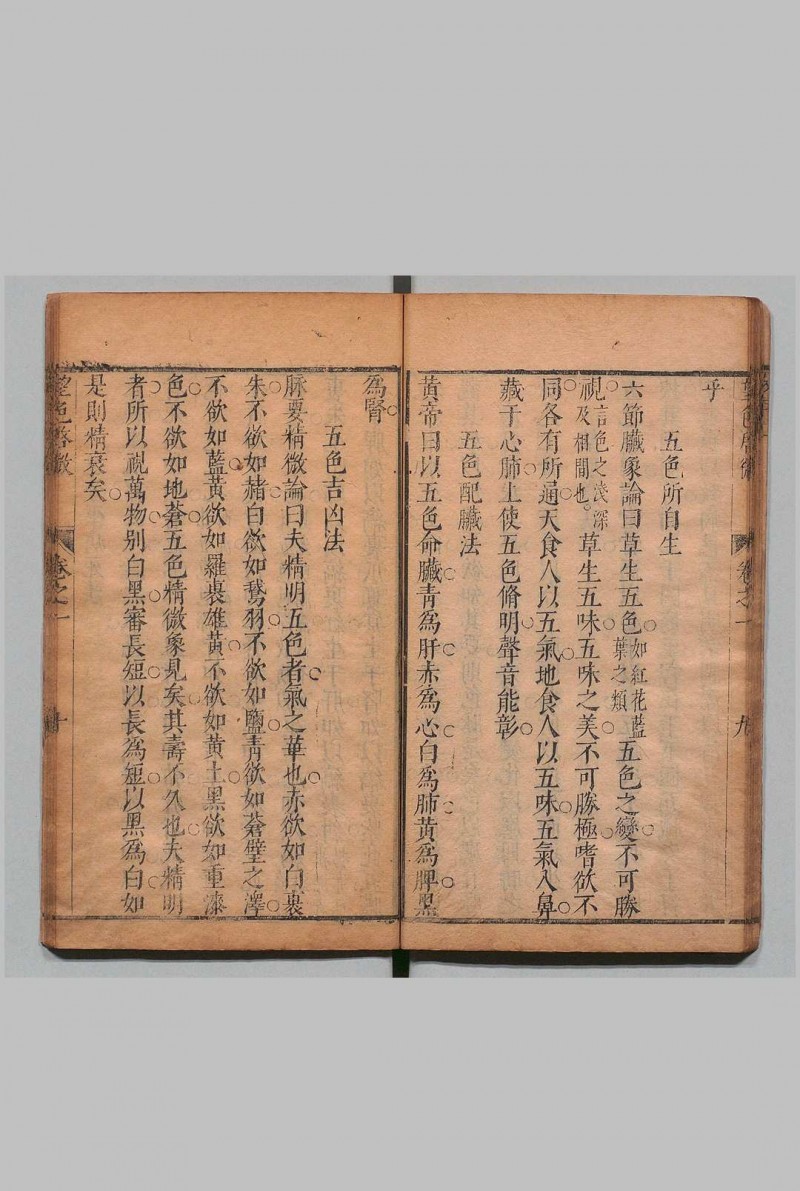 乎
五色所自生
六節臟象論曰草生五色如紅花藍葉之類五色之變不可勝
視言色之淺深及相間也草生五味五味之美不可勝極嗜欲不
同各有所通天食人以五氣地食人以五味五氣入鼻
藏于心肺上使五色脩明聲音能彰
五色配臟法
黃帝曰以五色命臟青爲肝赤爲心白爲肺黃爲脾黑
卷之一
九
爲腎
五色吉凶法
脉要精微論曰夫精明五色者氣之華也赤欲如白裹
朱不欲如赭白欲如鵞羽不欲如鹽青欲如蒼璧之澤
不欲如藍黃欲如羅裹雄黃不欲如黃土黑欲如重漆
色不欲如地蒼五色精微象見矣其壽不久也夫精明
者所以視萬物别白黑審長短以長爲短以黑爲白如
是則精衰矣
望色啓微
卷之一
十